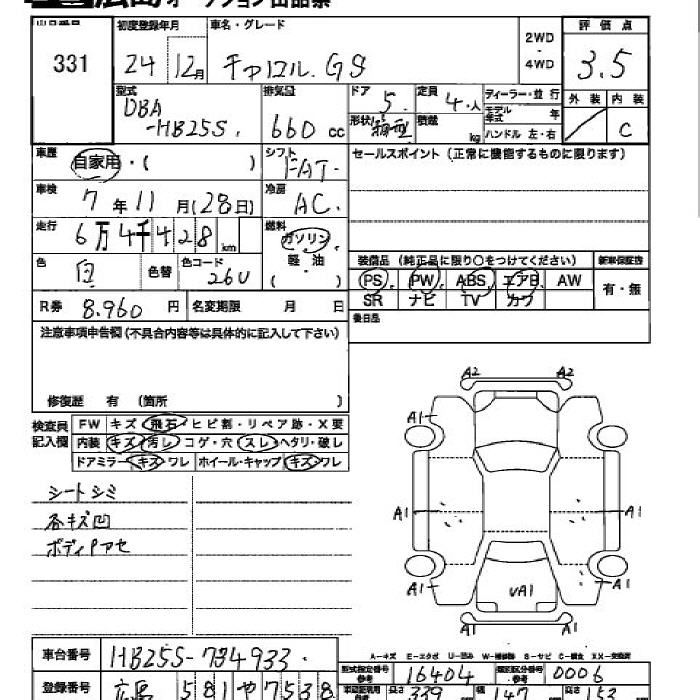 広島オークション出品票
出品番号 初度登録年月 車名・グレード 評価点
331 24 12月 キャロル. GS 2WD・4WD 3.5
型式 排気量 ドア 定員 ディーラー・並行 外装 内装
DBA-HB25S. 660cc 5. 4.人 モデル年式 年 C
形状 箱型 積載 kg ハンドル 左・右
車歴 自家用・( ) シフト FAT. セールスポイント(正常に機能するものに限ります)
車検 7年11月(28日) 冷房 AC.
走行 6万4千428km 燃料 ガソリン. 軽・油 ( )
色 白 色替 色コード 26U 装備品(純正品に限り○をつけてください) 新車保証書
PS PW ABS エアB AW 有・無
R券 8.960円 名変期限 月 日 SR ナビ TV カワ
後日品
注意事項申告欄(不具合内容等は具体的に記入して下さい)
修復歴 有 (箇所 )
検査員記入欄 FW キズ・飛石・ヒビ割・リペア跡・X要
内装 キズ・汚し・コゲ・穴・スレ・ヘタリ・破し
ドアミラー キズ・ワレ ホイール・キャップ キズ・ワレ
シートシミ
各キズ凹
ボディPアセ
A2 A2
A1
A1 A1
A1
UA1
A-キズ E-エクボ U-凹み W-補修跡 S-サビ C-腐食 XX-交換済
車台番号 HB25S-734933. 型式指定番号 16404 類別区分番号 0006
登録番号 広島 581 や 7538 長さ 339 幅 147 高さ 153